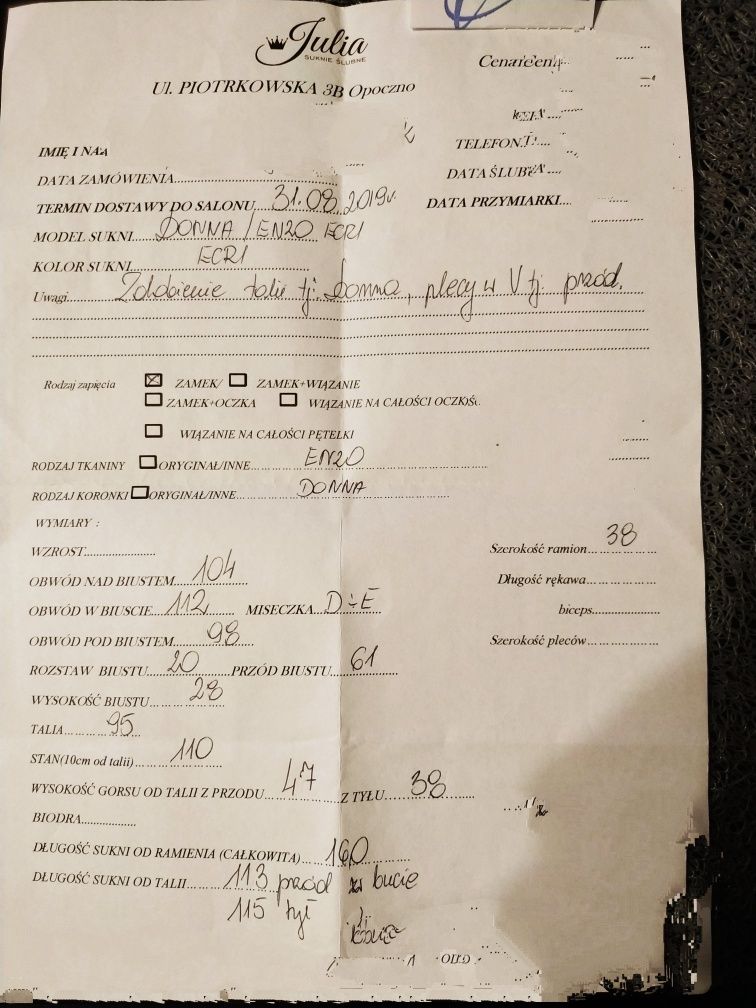 Julia
SUKNIE ŚLUBNE
Ul. PIOTRKOWSKA 3B Opoczno
IMIĘ I
TELEFON
DATA ZAMÓWIENIA
DATA
TERMIN DOSTAWY DO SALONU 31.08.2019r. DATA PRZYMIARKI
MODEL SUKNI DONNA / ENZO ECRI
KOLOR SUKNI ECRI
Uwagi Zdobienie talii tj. Donna, plecy w V tj. przód.
Rodzaj zapięcia ☒ ZAMEK/ ☐ ZAMEK+WIĄZANIE
☐ ZAMEK+OCZKA ☐ WIĄZANIE NA CAŁOŚCI
☐ WIĄZANIE NA CAŁOŚCI PĘTELKI
RODZAJ TKANINY ☐ ORYGINAŁ/INNE ENZO
RODZAJ KORONKI ☐ ORYGINAŁ/INNE DONNA
WYMIARY :
WZROST
Szerokość ramion 38
OBWÓD NAD BIUSTEM 104
Długość rękawa
OBWÓD W BIUSCIE 112 MISECZKA D÷E
biceps
OBWÓD POD BIUSTEM 98
Szerokość pleców
ROZSTAW BIUSTU 20 PRZÓD BIUSTU 61
WYSOKOŚĆ BIUSTU 28
TALIA 95
STAN(10cm od talii) 110
WYSOKOŚĆ GORSU OD TALII Z PRZODU 47 Z TYŁU 38
BIODRA
DŁUGOŚĆ SUKNI OD RAMIENIA (CAŁKOWITA) 160
DŁUGOŚĆ SUKNI OD TALII 113 przód w bucie
115 tył